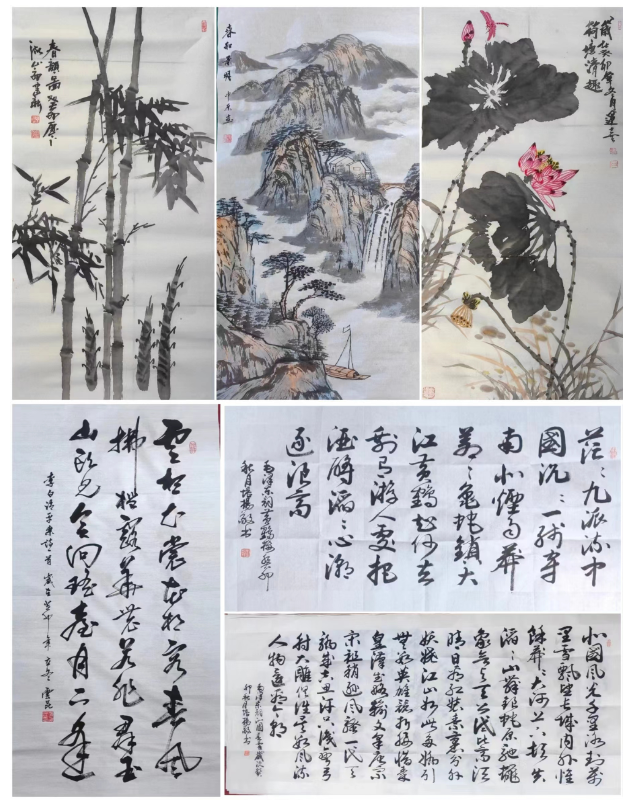 春和景明
雲想衣裳花想容春風
拂檻露華濃若非群玉
山頭見會向瑤臺月下逢
李白清平樂詩一首 歲在癸卯年
茫々九派流中
國沉々一線穿
南北煙雨莽
蒼々龜蛇鎖大
江黃鶴知何去
剩有游人處把
酒酹滔々心潮
逐浪高
毛澤東詞黃鶴樓癸卯
秋月
北國風光千里冰封萬
里雪飄望長城內外惟
餘莽々大河上下頓失
滔々山舞銀蛇原馳蠟
象欲與天公試比高須
晴日看紅裝素裹分外
妖嬈江山如此多嬌引
無數英雄競折腰惜秦
皇漢武略輸文采唐宗
宋祖稍遜風騷一代天
驕成吉思汗只識彎弓
射大雕俱往矣數風流
人物還看今朝